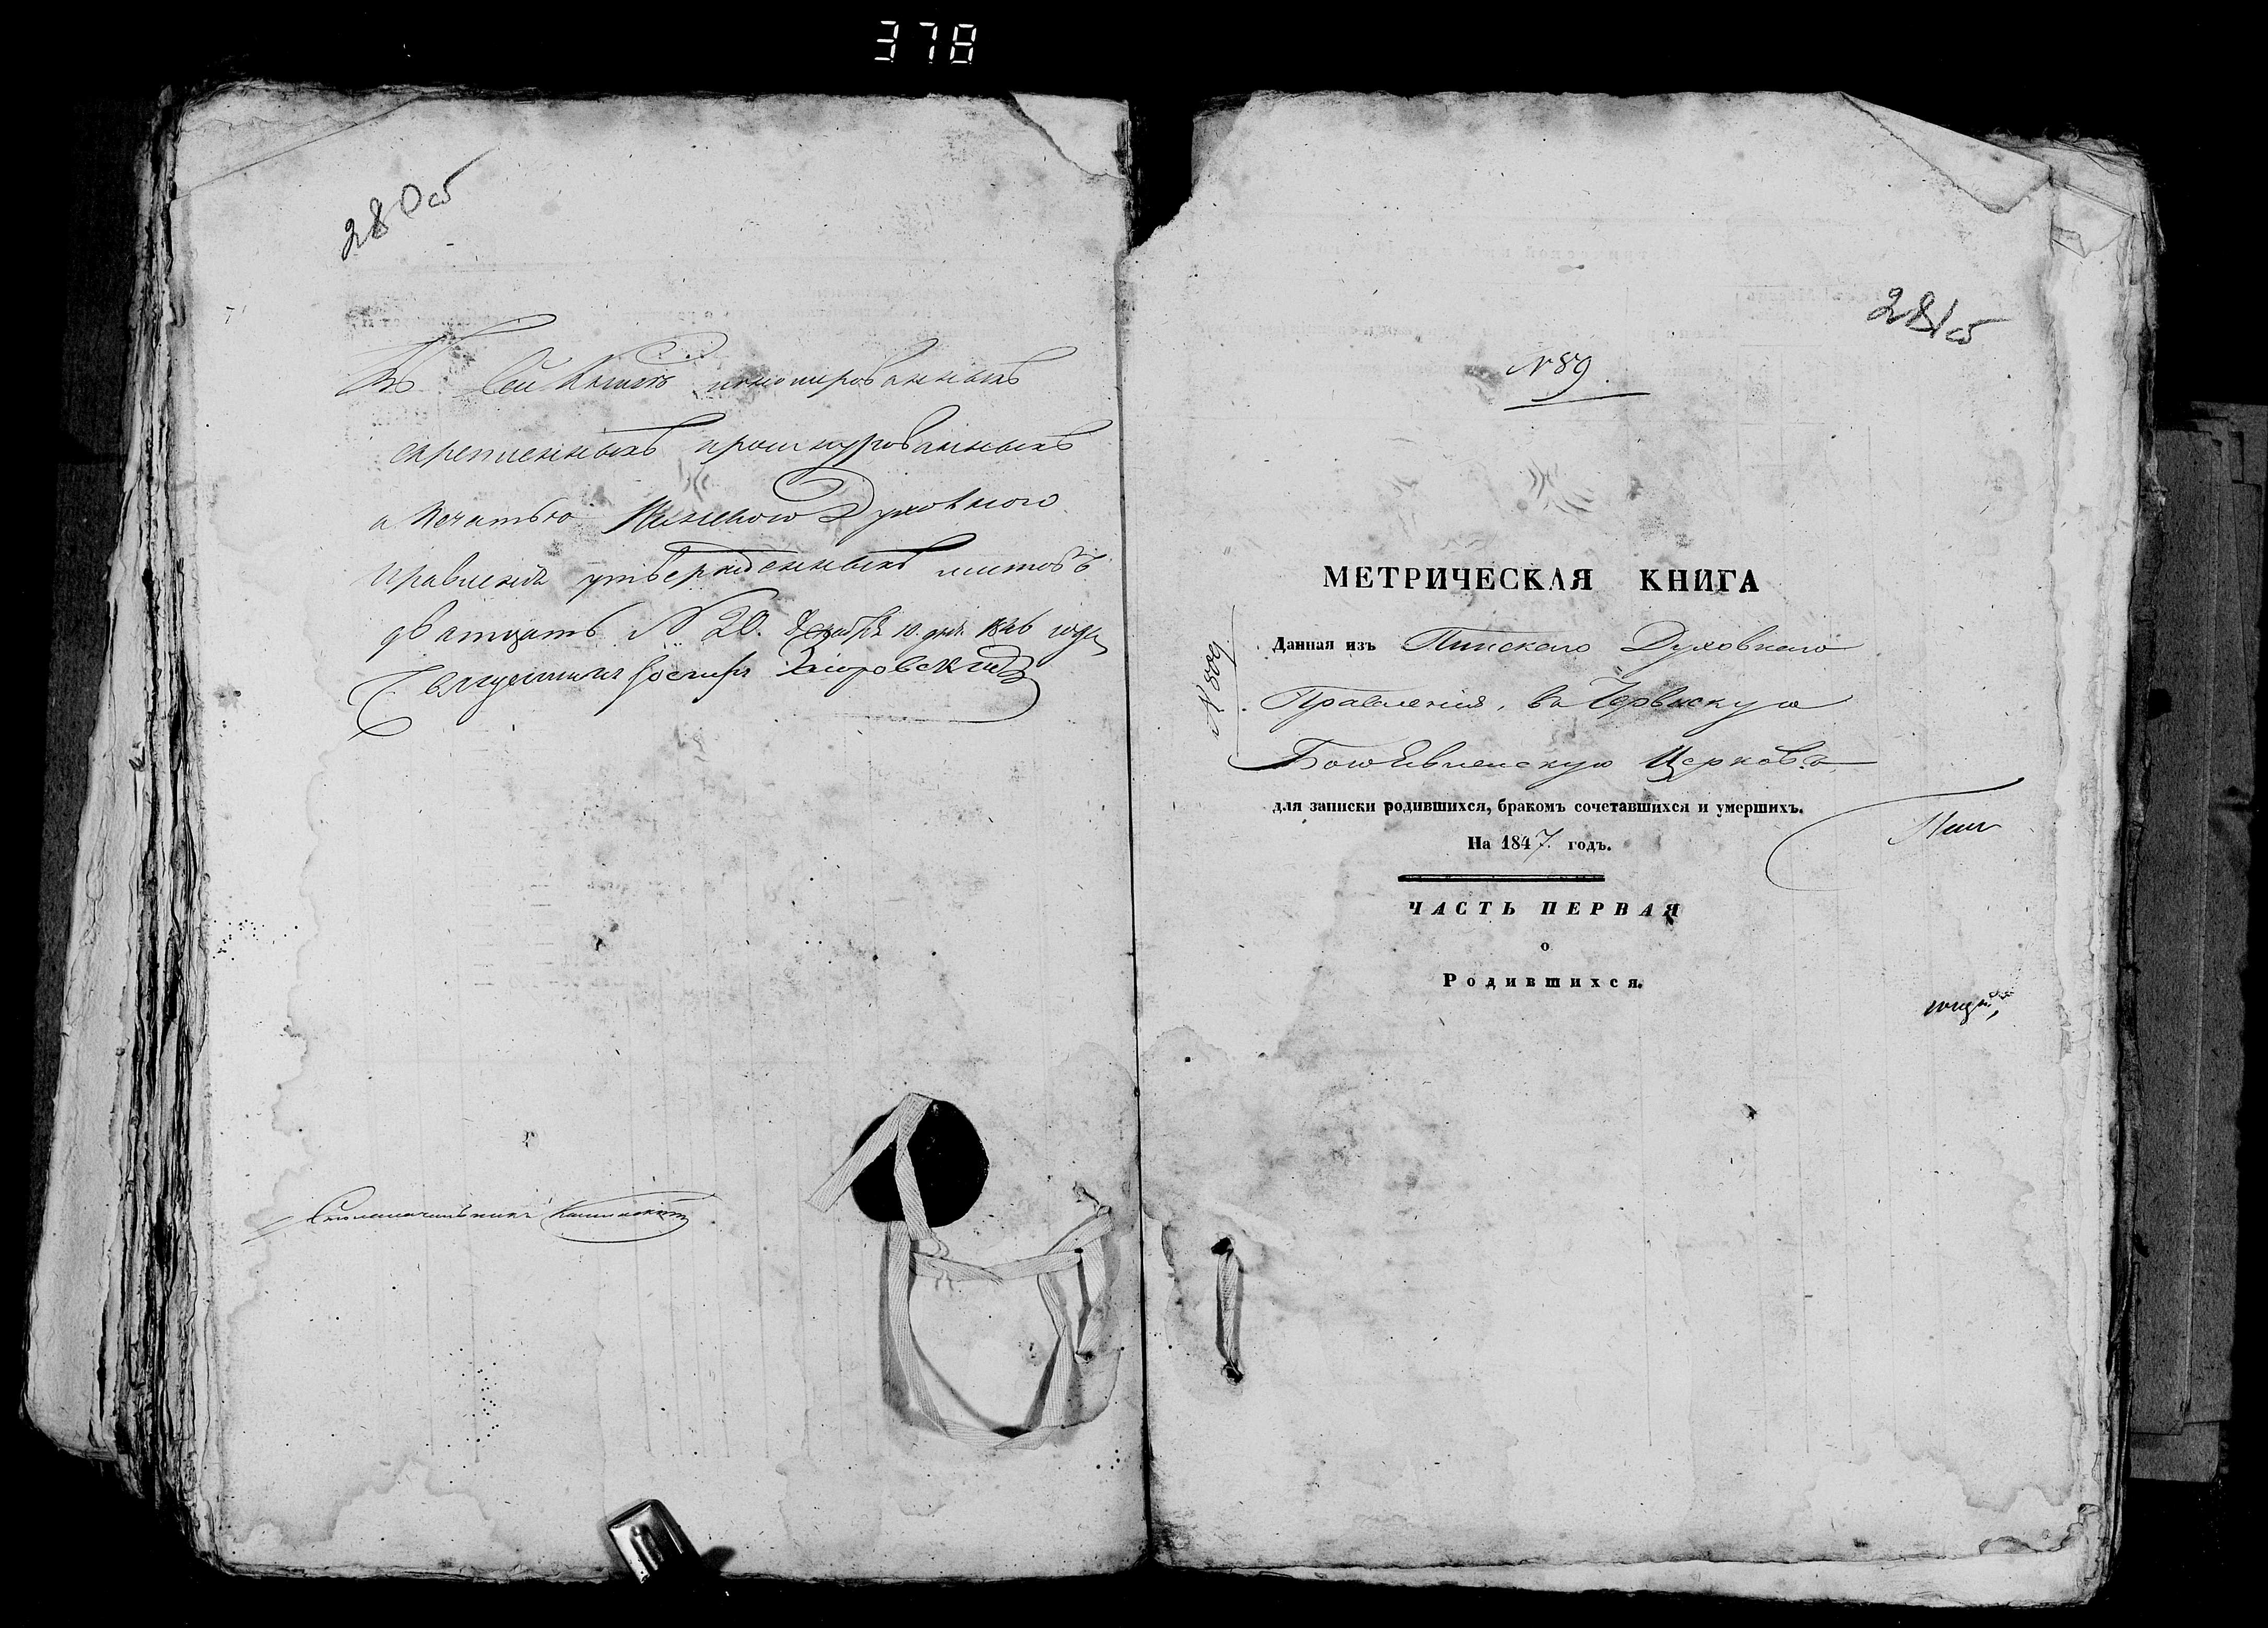 378
280об
Въ Сей Книгѣ нумерованныхъ
скрепленныхъ прошнурованныхъ
и Печатью Пинского Духовного
Правленія утвержденныхъ листовъ
дватцать N 20. Декабря 10. дня 1846 года
Священникъ Іосифъ
Столоначальникъ
281об
N 89.
МЕТРИЧЕСКАЯ КНИГА
N 809
Данная изъ Пинскаго Духовнаго
Правленія, въ Червискую
БогоЯвленскую Церковь
для записки родившихся, бракомъ сочетавшихся и умершихъ.
На 1847. годъ.
ЧАСТЬ ПЕРВАЯ
о
Родившихся.